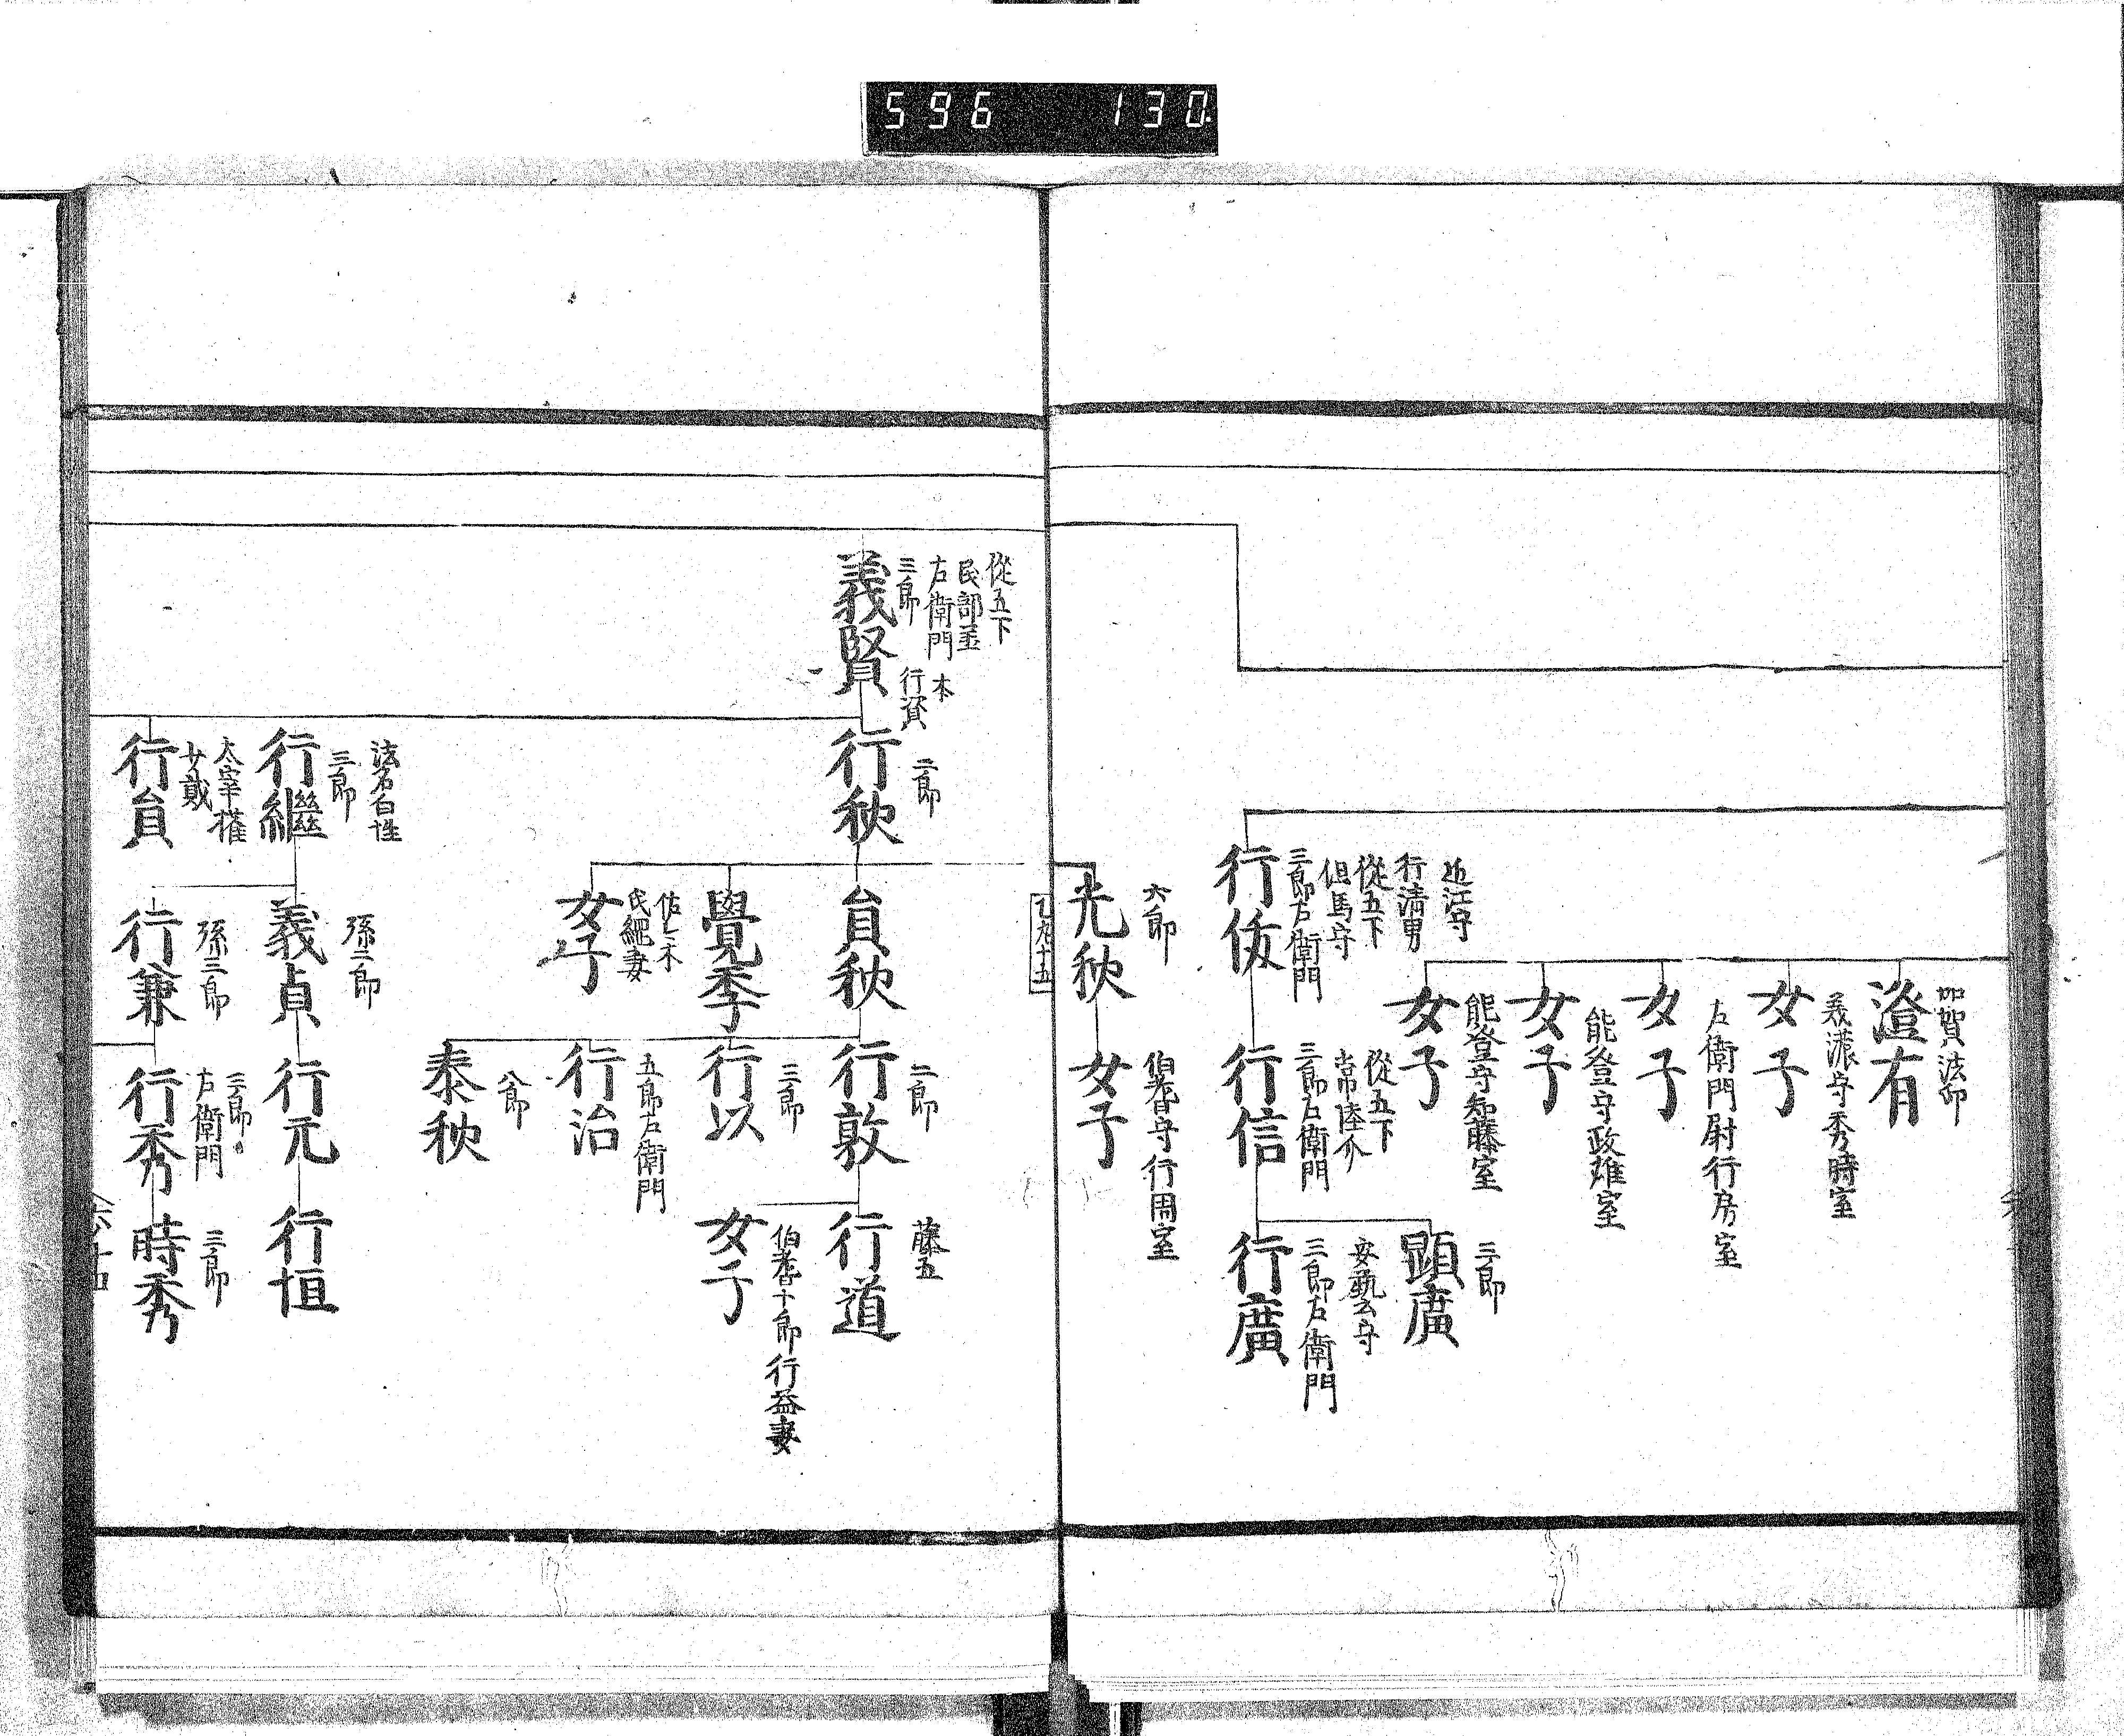 596 130
加賀法印
澄有
義濃守秀時室
女子
左衛門尉行房室
女子
能登守政雄室
女子
能登守知藤室
女子
近江守
行清男
從五下
但馬守
三郎左衛門
行佐
從五下
常陸介
三郎左衛門
行信
三郎
顕廣
安藝守
三郎左衛門
行廣
六郎
光秋
伯耆守行周室
女子
從五下
民部丞
左衛門
三郎
本
行資
義賢
二郎
行秋
員秋
覺季
佐々木
氏綱妻
女子
二郎
行敦
三郎
行以
五郎左衛門
行治
八郎
泰秋
藤五
行道
伯耆十郎行益妻
女子
法名白性
三郎
行繼
太宰權
少貳
行員
孫二郎
義貞
孫三郎
行兼
行元
三郎
左衛門
行秀
行恒
三郎
時秀